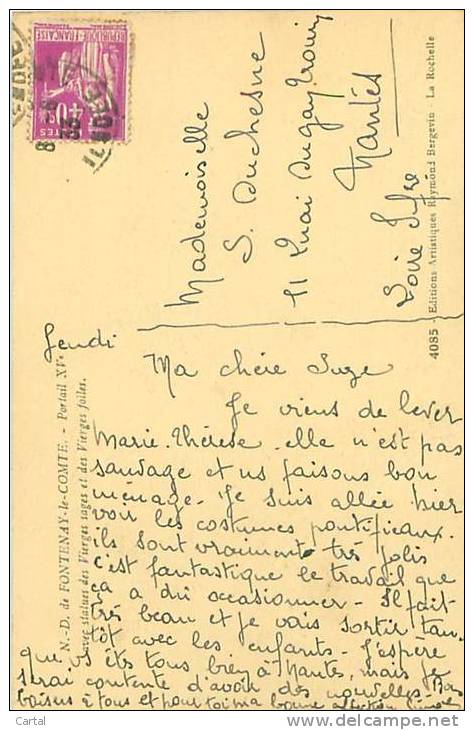 RÉPUBLIQUE FRANÇAISE
40
POSTES
Mademoiselle
S. Duchesne
11 Quai Duguay Trouin
Nantes
Loire Infre
4085 - Editions Artistiques Raymond Bergevin - La Rochelle
N.-D. de FONTENAY-le-COMTE. - Portail XVe
avec statues des Vierges sages et des Vierges folles.
Jeudi
Ma chère Suze
Je viens de lever
Marie-Thérèse elle n'est pas
sauvage et ns faisons bon
ménage. Je suis allée hier
voir les costumes pontificaux.
ils sont vraiment très jolis
c'est fantastique le travail que
ça a dû occasionner - Il fait
très beau et je vais sortir tan-
tôt avec les enfants. J'espère
que vs êtes tous bien à Nantes, mais je
serai contente d'avoir des nouvelles. Bons
baisers à tous et pour toi ma bonne affection
Cartal
delcampe.net